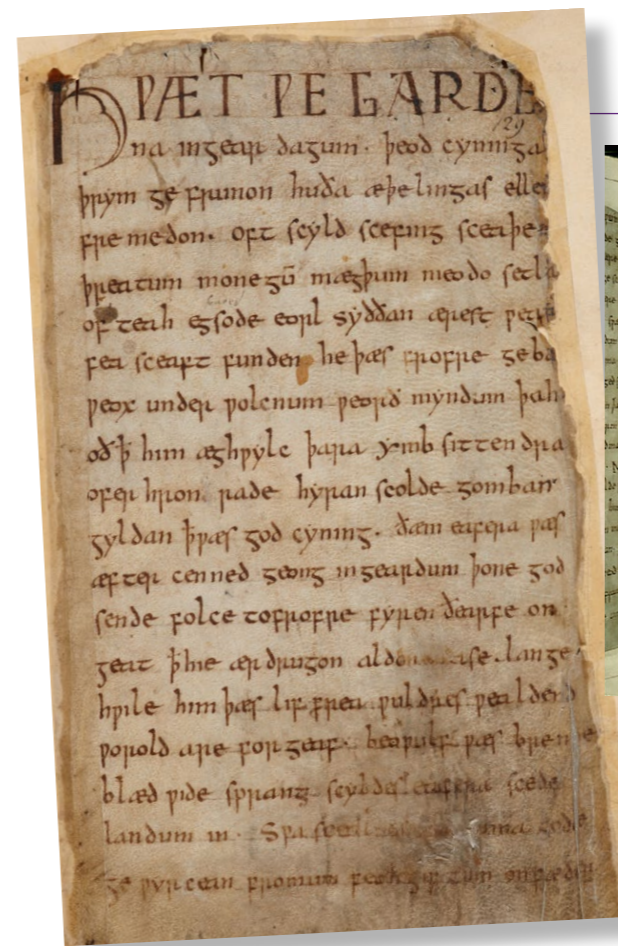 HǷÆT ǷE GARDE
129
na ingear dagum. þeod cyninga
þrym ge frunon huða æþelingas ellen
fremedon. oft scyld scefing sceaþena
þreatum monegū mægþum meodo setla
of teah egsode eorl syððan ærest ƿearð
fea sceaft funden he þæs frofre geba
ƿeox under ƿolcnum ƿeorð myndum þah
oð þ̄ him æghƿylc þara ymb sittendra
ofer hron rade hyran scolde gomban
gyldan þ̄ ƿæs god cyning. ðæm eafera ƿæs
æfter cenned geong in geardum þone god
sende folce tofrofre fyren ðearfe on
geat þ̄ hie ær drugon aldor ase lange
hƿile him þæs lif frea ƿuldres ƿealdend
ƿorold are for geaf. beoƿulf ƿæs breme
blæd ƿide sprang scyldes eafera scede
landum in. Sƿa guma gode
ge ƿyrcean fromum feoh giftum on fæder